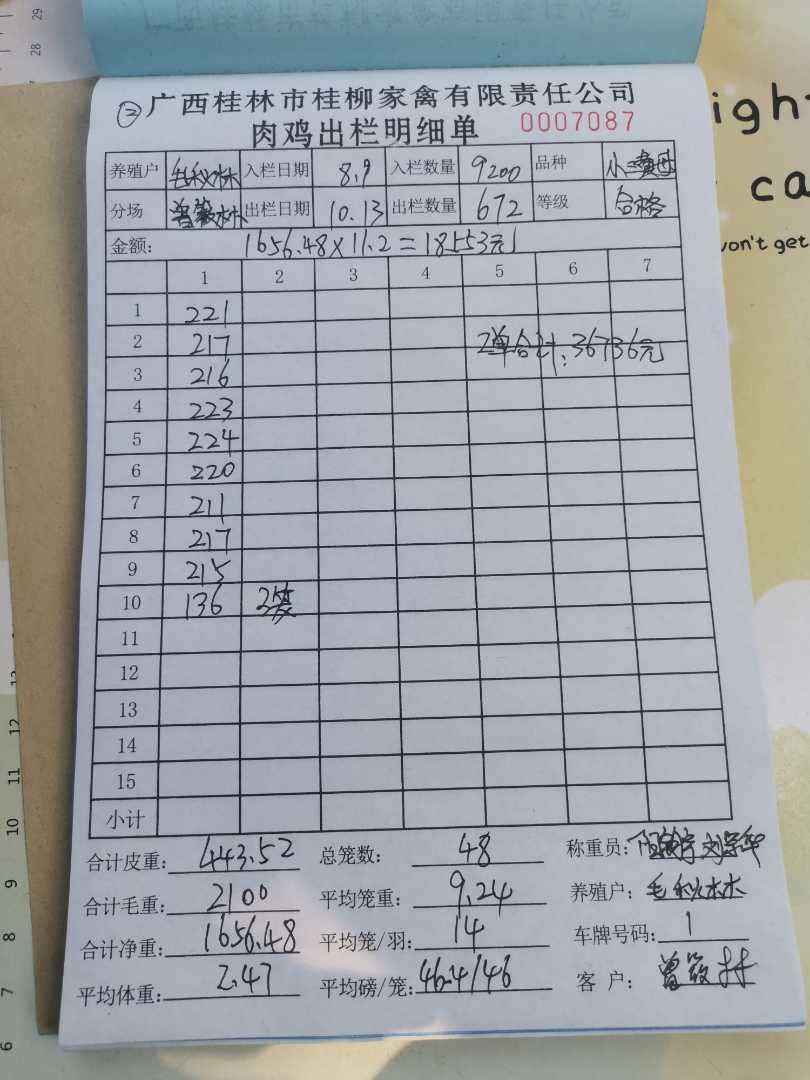 ② 广西桂林市桂柳家禽有限责任公司
肉鸡出栏明细单 0007087
养殖户 毛秋林 入栏日期 8.9 入栏数量 9200 品种
分场 出栏日期 10.13 出栏数量 672 等级 合格
金额: 1656.48×11.2=18553元
1 2 3 4 5 6 7
1 221
2 217 2单合计:36736元
3 216
4 223
5 224
6 220
7 211
8 217
9 215
10 136 3笼
11
12
13
14
15
小计
合计皮重: 443.52 总笼数: 48 称重员:
合计毛重: 2100 平均笼重: 9.24 养殖户: 毛秋林
合计净重: 1656.48 平均笼/羽: 14 车牌号码: 1
平均体重: 2.47 平均磅/笼: 46.4/46 客 户:
ight
ca
won't get
29
28
12
11
10
9
8
7
6